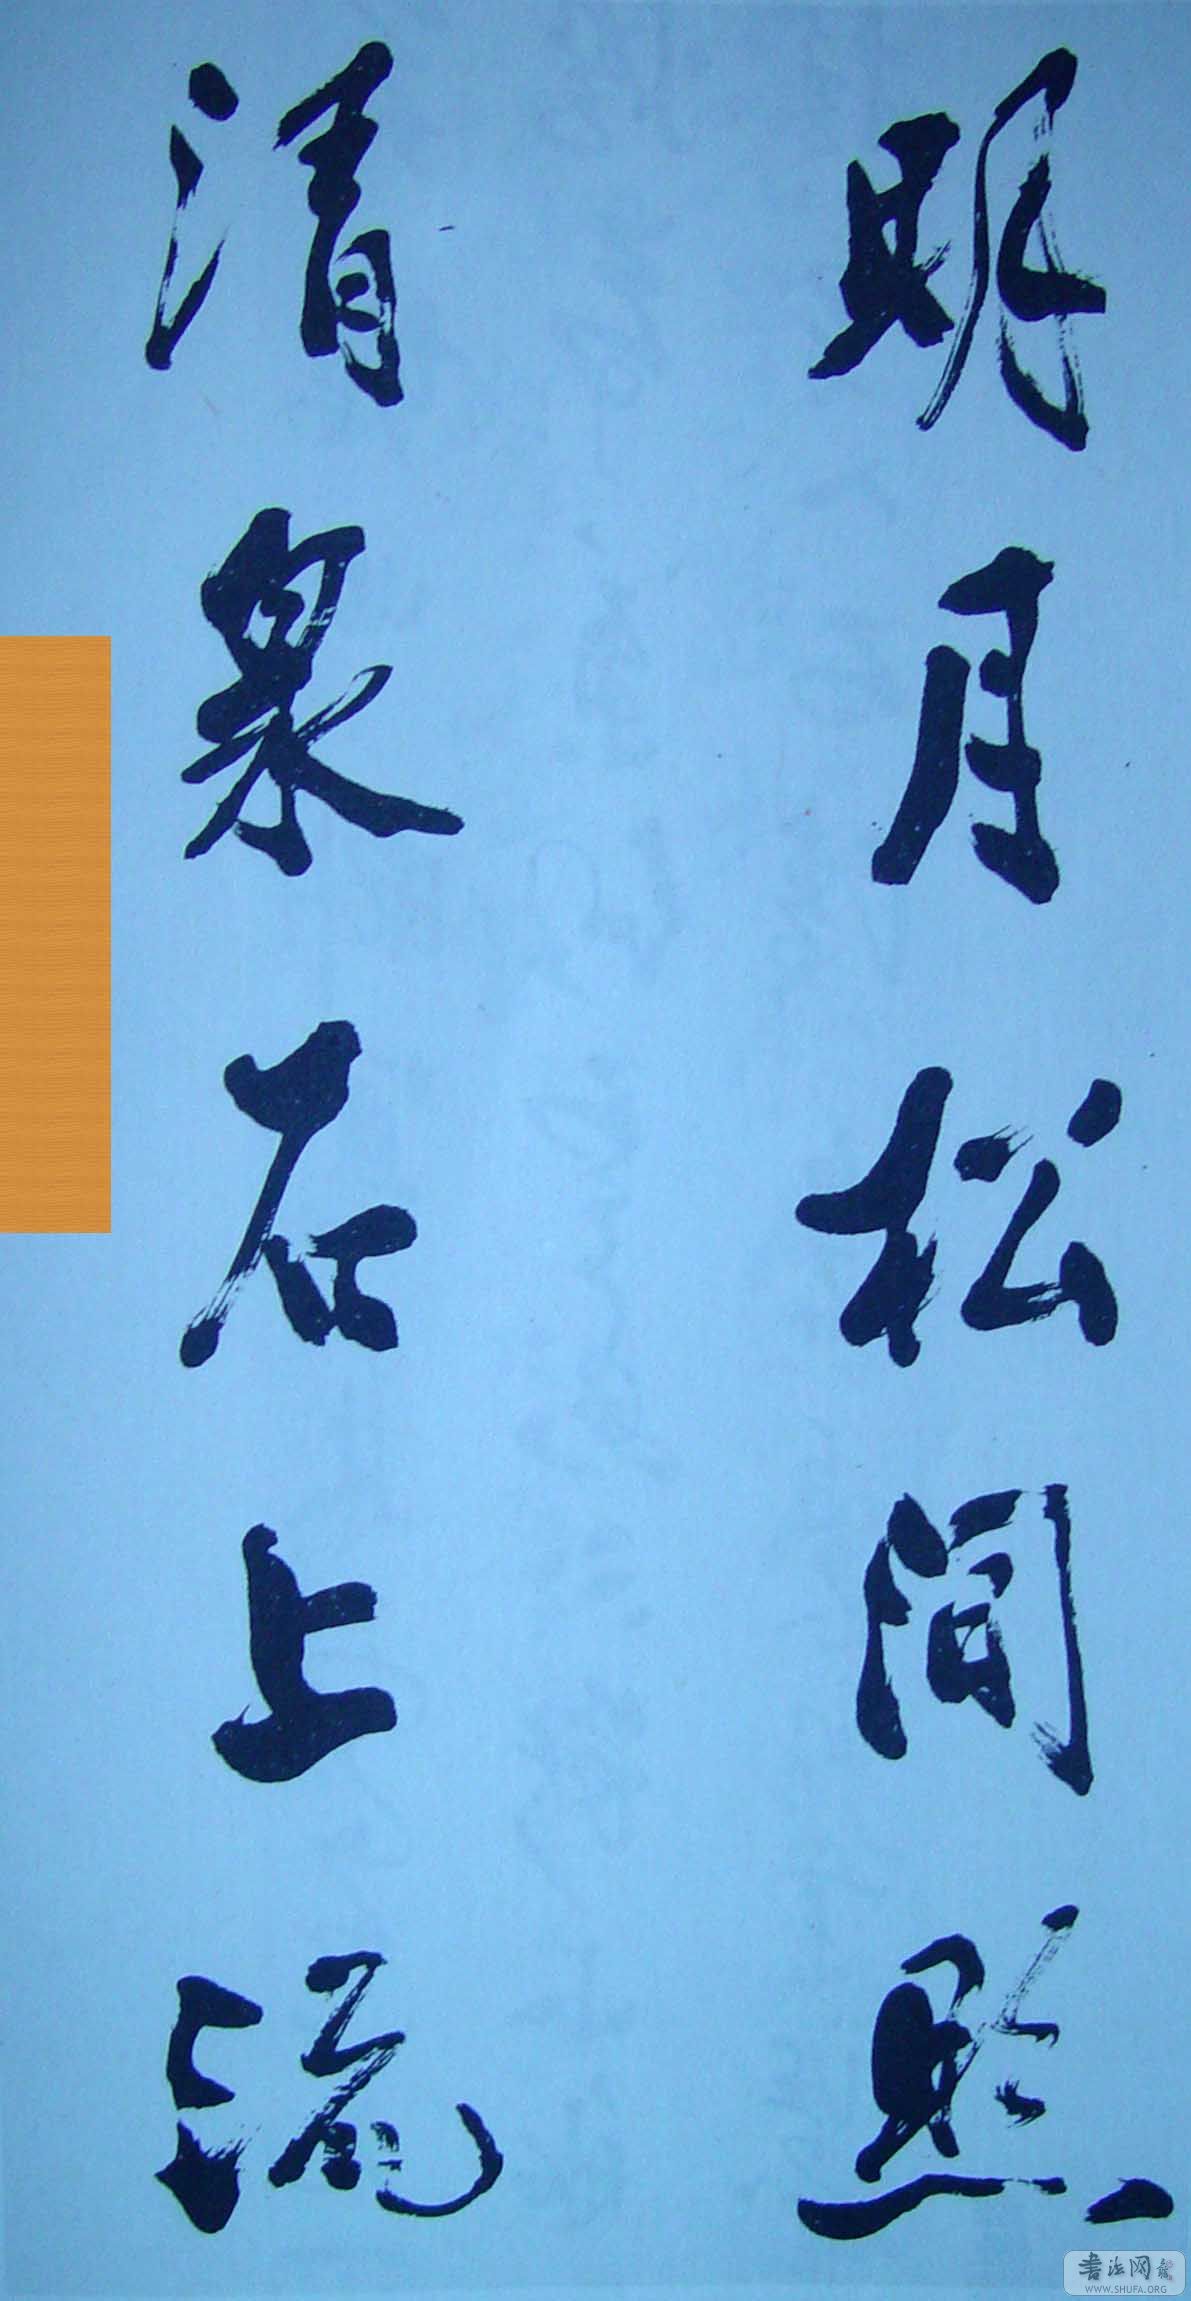 明月松间照
清泉石上流
书法网
WWW.SHUFA.ORG